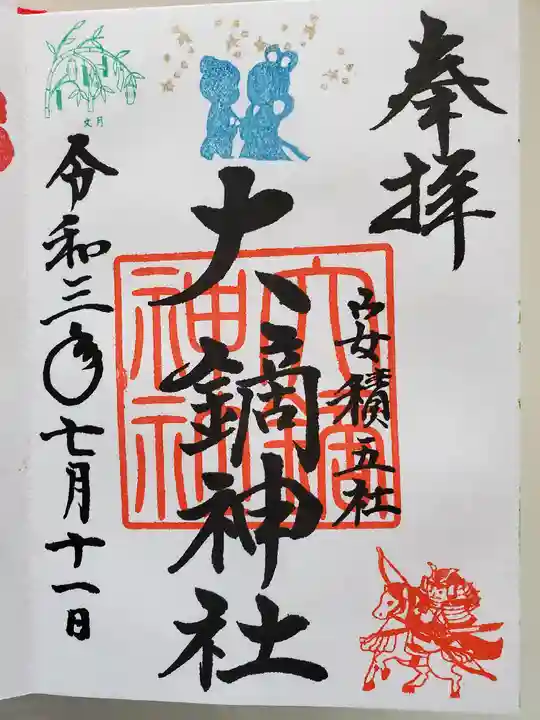 奉拝
安積五社
大鏑神社
令和三年七月十一日
文月
大鏑神社